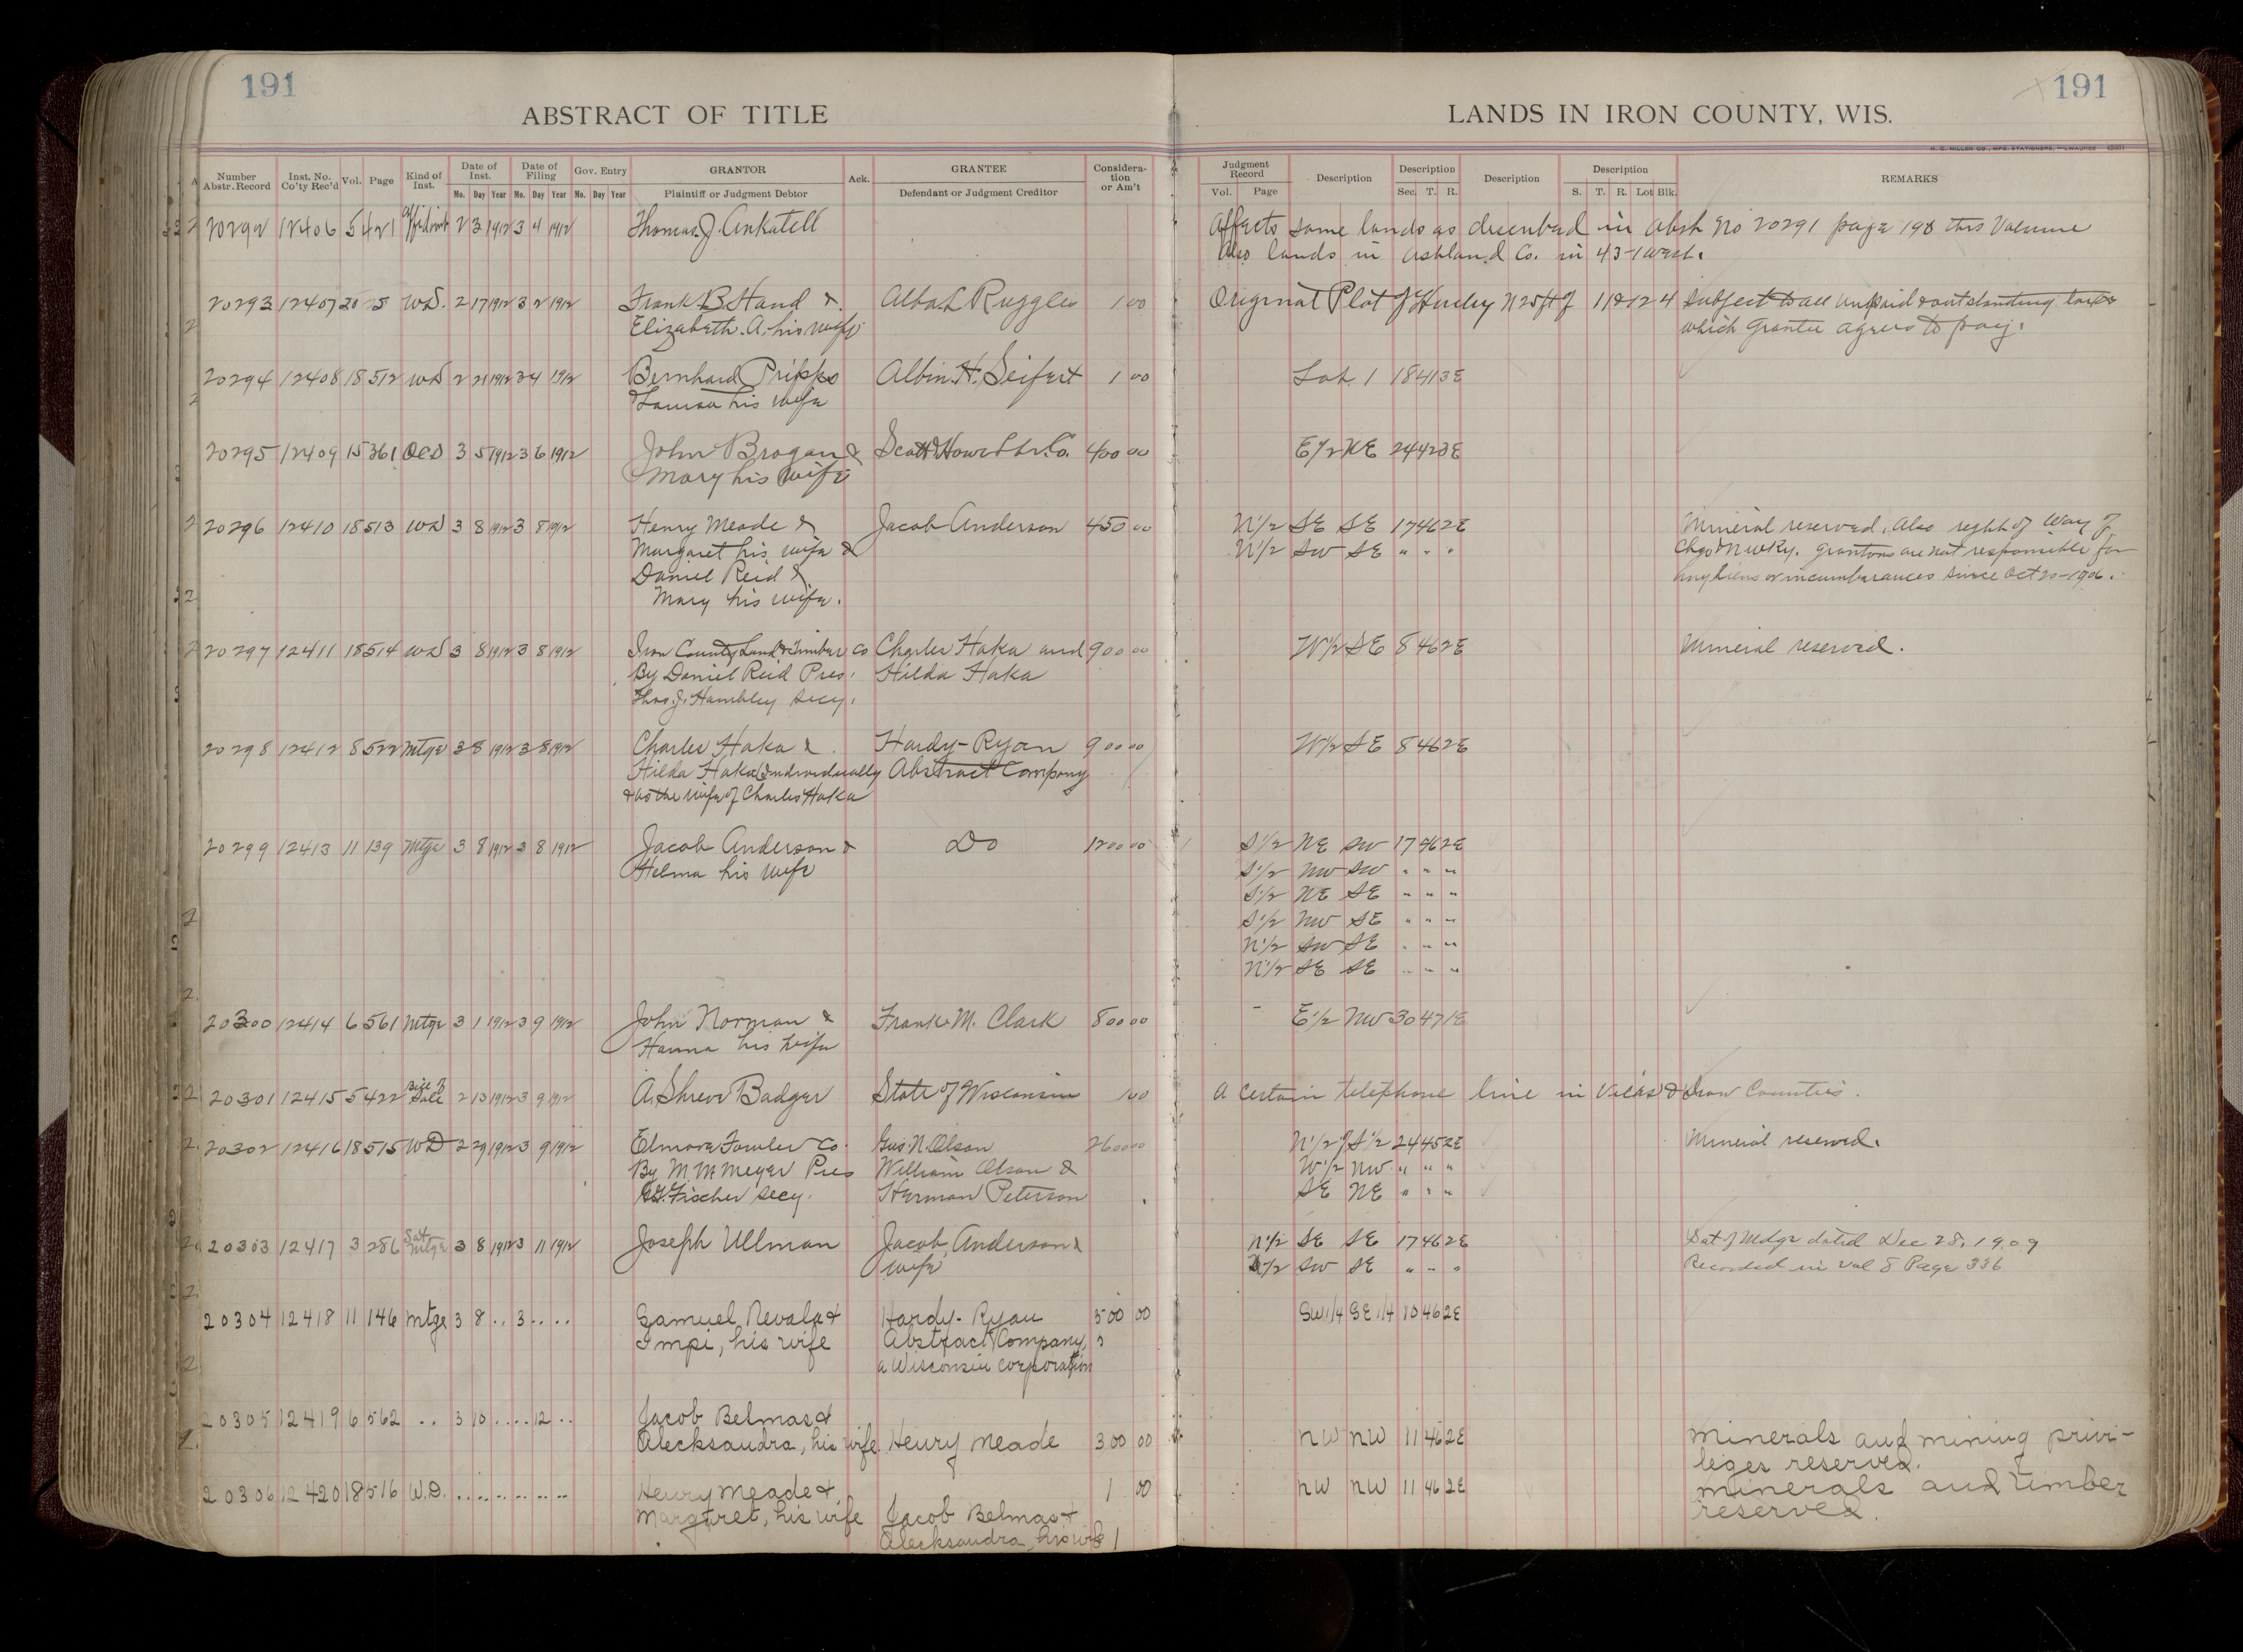 191
191
ABSTRACT OF TITLE
LANDS IN IRON COUNTY, WIS.
H. C. MILLER CO., MFG. STATIONERS, MILWAUKEE
Number Abstr. Record Inst. No. Co'ty Rec'd Vol. Page Kind of Inst. Date of Inst. Mo. Day Year Date of Filing Mo. Day Year Gov. Entry Mo. Day Year GRANTOR Plaintiff or Judgment Debtor Ack. GRANTEE Defendant or Judgment Creditor Considera- tion or Am't
Judgment Record Vol. Page Description Description Sec. T. R. Description Description S. T. R. Lot Blk. REMARKS
20292 12406 5 421 Affidavit 2 3 1912 3 4 1912 Thomas J. Ankatell Affects same lands as described in Abst. No 20291 page 190 this Volume
Also lands in Ashland Co. in 43-1 West.
20293 12407 20 5 WD. 2 17 1912 3 2 1912 Frank B Hand & Alba L Ruggles 1 00 Original Plat of Hurley N 25 ft of 11 & 12 4 Subject to all unpaid & outstanding taxes
Elizabeth A. his wife which Grantee agrees to pay.
20294 12408 18 512 WD 2 21 1912 3 4 1912 Bernhard Pripps Albin H. Seifert 1 00 Lot 1 18 41 3E
& Laura his wife
20295 12409 15 361 QCD 3 5 1912 3 6 1912 John Brogan & Scott & Howe Lbr. Co. 400 00 E1/2 NE 24 42 3E
Mary his wife
20296 12410 18 513 WD 3 8 1912 3 8 1912 Henry Meade & Jacob Anderson 450 00 N1/2 SE SE 17 46 2E Mineral reserved. Also right of Way of
Margaret his wife & N1/2 SW SE " " " Chgo & NW Ry. Grantors are not responsible for
Daniel Reid & any liens or incumbarances since Oct 20-1906.
Mary his wife.
20297 12411 18 514 WD 3 8 1912 3 8 1912 Iron County Land & Timber Co Charles Haka and 900 00 W1/2 SE 8 46 2E Mineral reserved.
By Daniel Reid Pres. Hilda Haka
Thos. J. Hambley Secy.
20298 12412 8 522 Mtge 3 8 1912 3 8 1912 Charles Haka & Hardy-Ryan 900 00 W1/2 SE 8 46 2E
Hilda Haka Individually Abstract Company
& as the wife of Charles Haka
20299 12413 11 139 Mtge 3 8 1912 3 8 1912 Jacob Anderson & Do 1200 00 S1/2 NE SW 17 46 2E
Helma his wife S1/2 NW SW " " "
S1/2 NE SE " " "
S1/2 NW SE " " "
N1/2 SW SE " " "
N1/2 SE SE " " "
20300 12414 6 561 Mtge 3 1 1912 3 9 1912 John Norman & Frank M. Clark 800 00 E1/2 NW 30 47 1E
Hanna his wife
20301 12415 5 422 Bill of Sale 2 13 1912 3 9 1912 A. Shreve Badger State of Wisconsin 1 00 A certain telephone line in Vilas & Iron Counties.
20302 12416 18 515 WD 2 29 1912 3 9 1912 Elmore Fowler Co. Gus. N. Olson 2600 00 N1/2 of S1/2 24 45 2E Mineral reserved.
By M. M. Meyer Pres William Olson & W1/2 NW " " "
Fischer Secy. Herman Peterson SE NE " " "
20303 12417 3 286 Sat. Mtge 3 8 1912 3 11 1912 Joseph Ullman Jacob Anderson & N1/2 SE SE 17 46 2E Sat of Mdge dated Dec 28, 1909
wife N1/2 SW SE " " " Recorded in Vol 8 Page 336
20304 12418 11 146 Mtge 3 8 .. 3 .. .. Samuel Nevala & Hardy-Ryan 500 00 SW1/4 SE1/4 10 46 2E
Impi, his wife Abstract Company,
a Wisconsin corporation
20305 12419 6 562 .. 3 10 .. .. 12 .. Jacob Belmas &
Alecksandra, his wife Henry Meade 300 00 NW NW 11 46 2E Minerals and mining privi-
leges reserved.
20306 12420 18 516 W.D. .. .. .. .. .. .. Henry Meade & 1 00 NW NW 11 46 2E Minerals and timber
Margaret, his wife Jacob Belmas & reserved.
Alecksandra, his wife